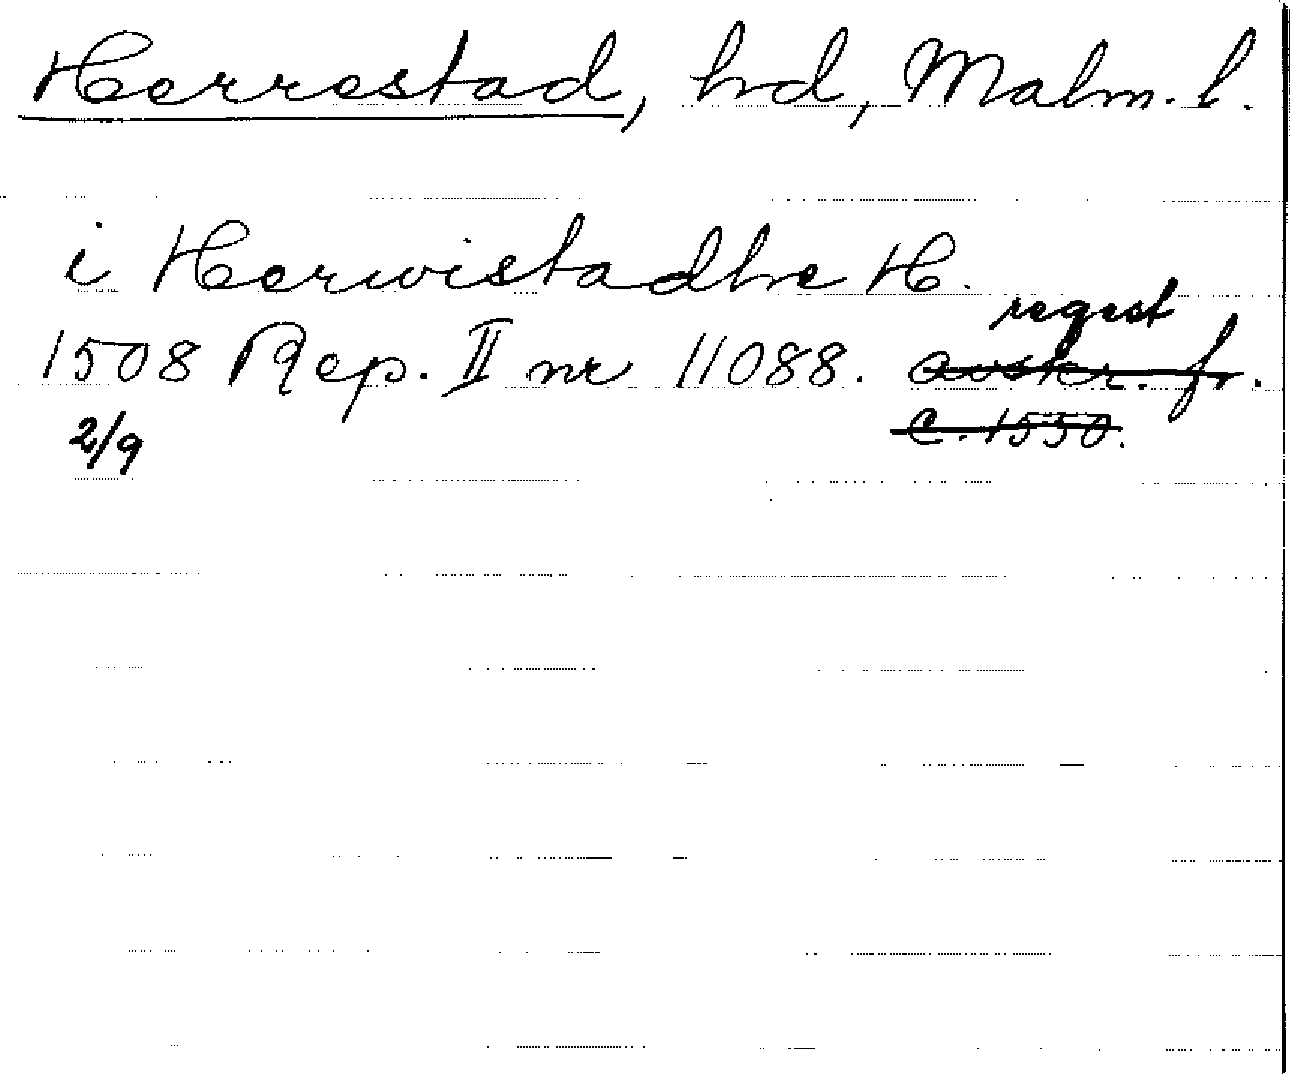 Herrestad, hd, Malm. l.
i Herwistadhe H.
regest
1508 Rep. II nr 11088. avskr. fr.
2/9 c. 1550.